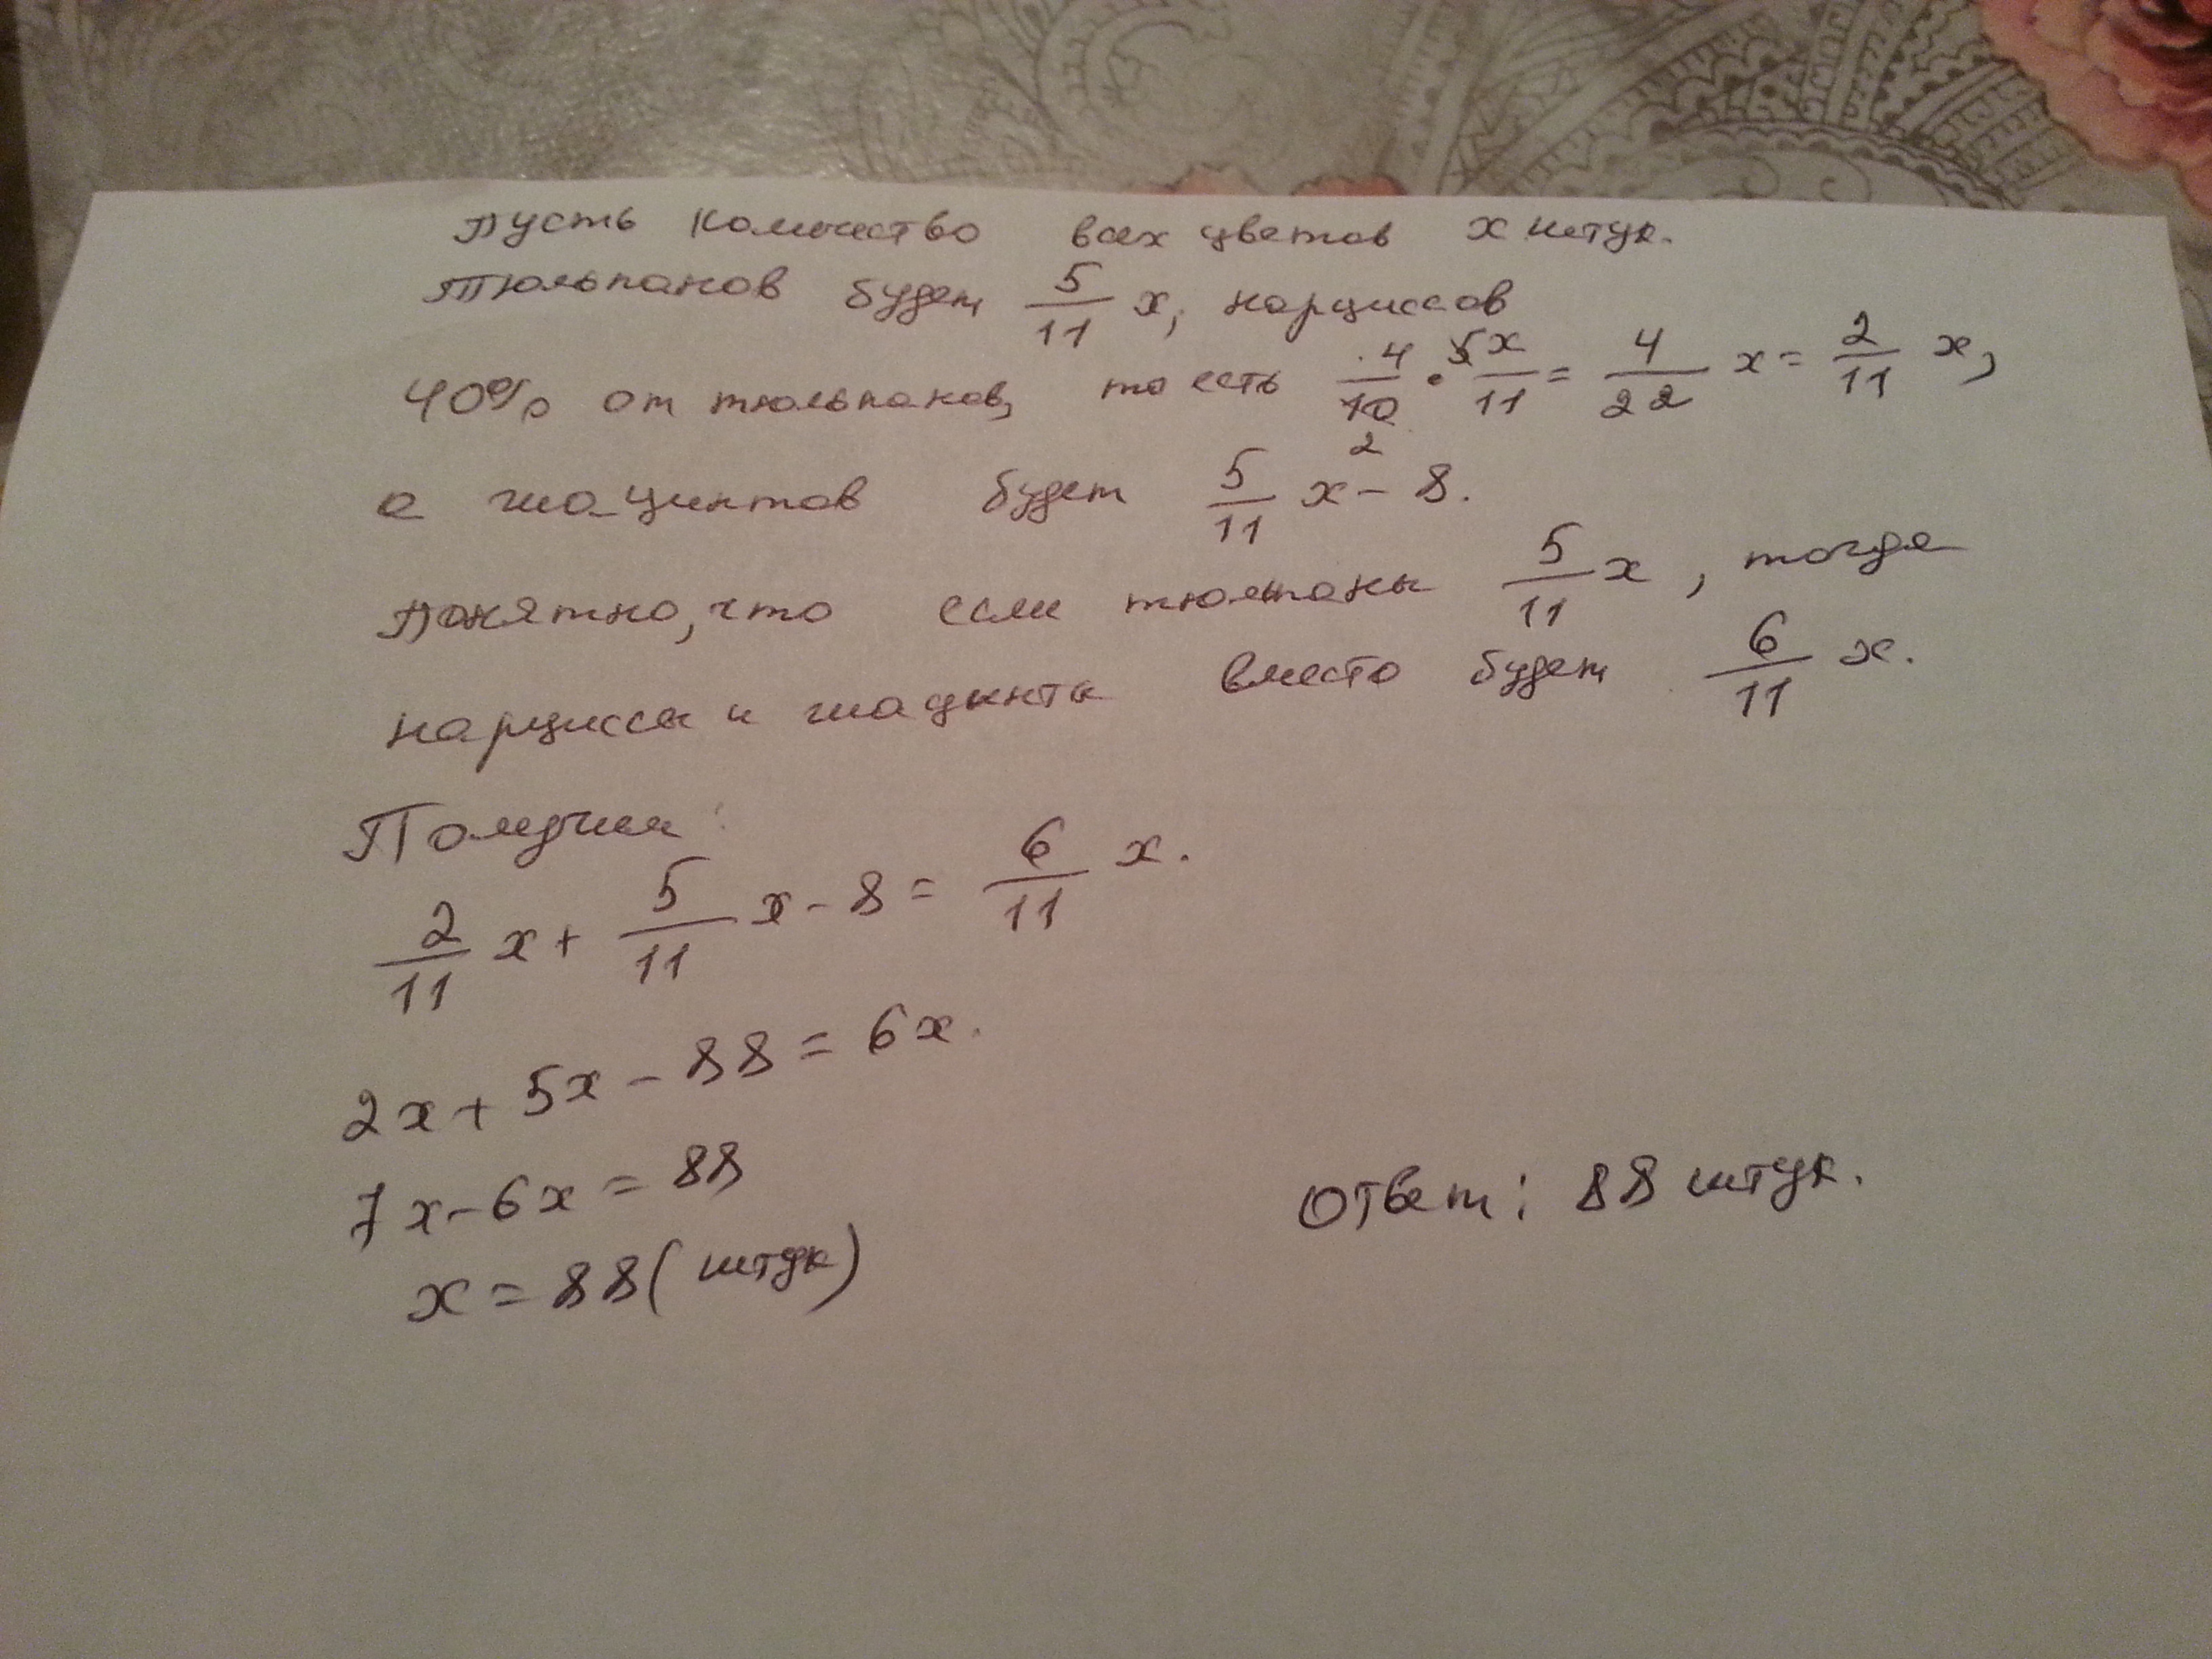 Пусть количество всех цветов x штук.
Тюльпанов будет 5/11 x, нарциссов
40% от тюльпанов, то есть 4/10 · 5x/11 = 4/22 x = 2/11 x,
2
а гиацинтов будет 5/11 x - 8.
Понятно, что если тюльпаны 5/11 x, тогда
нарциссы и гиацинты вместо будет 6/11 x.
Получим:
2/11 x + 5/11 x - 8 = 6/11 x.
2x + 5x - 88 = 6x.
7x - 6x = 88
x = 88 (штук)
Ответ: 88 штук.